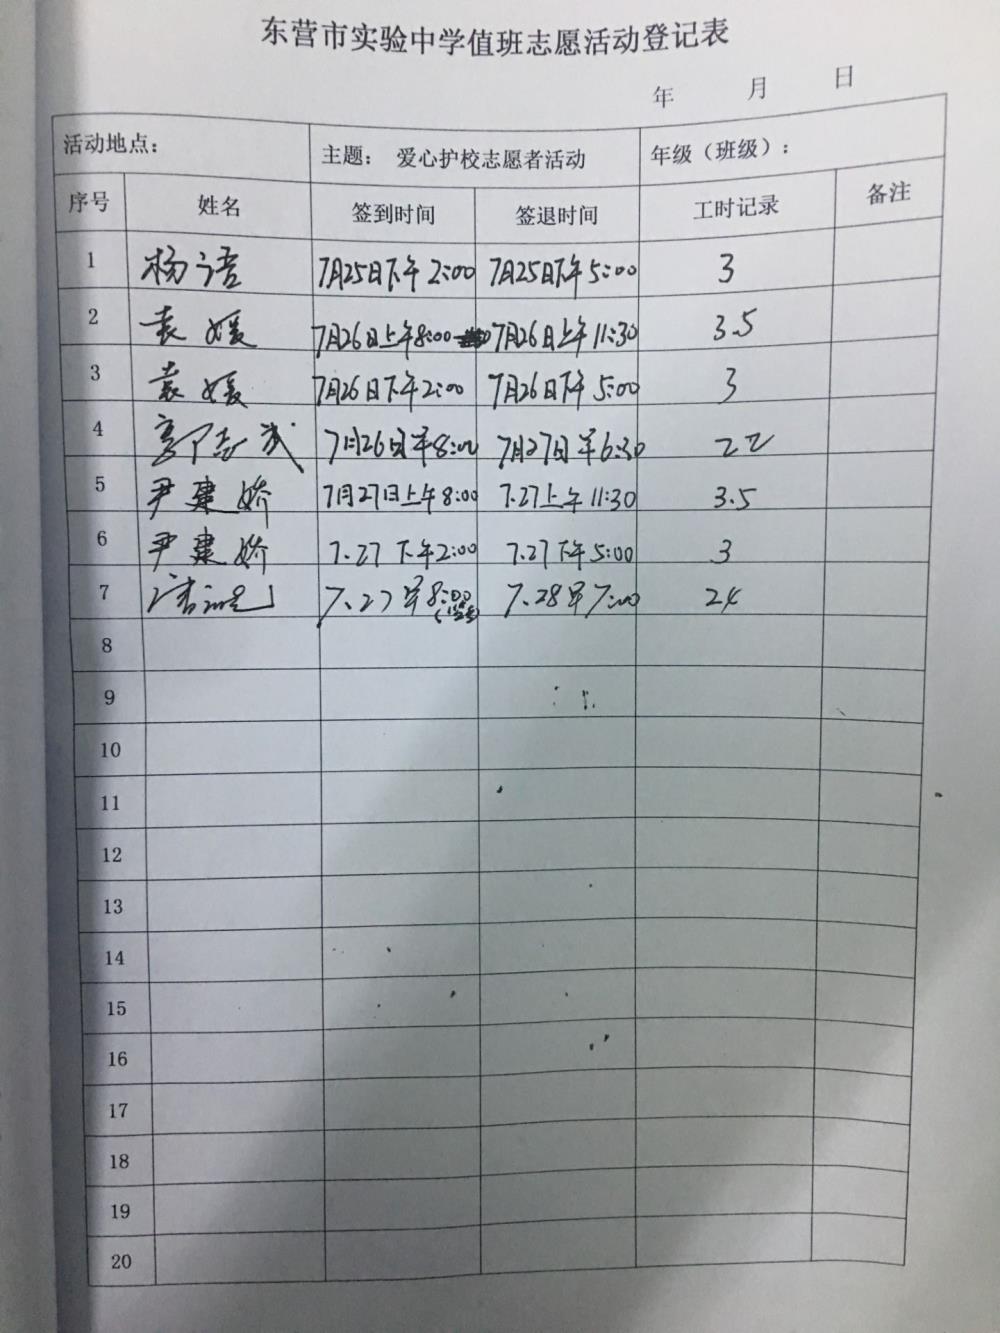 东营市实验中学值班志愿活动登记表
年 月 日
活动地点： 主题： 爱心护校志愿者活动 年级（班级）：
序号 姓名 签到时间 签退时间 工时记录 备注
1 杨语 7月25日下午2:00 7月25日下午5:00 3
2 袁媛 7月26日上午8:00 7月26日上午11:30 3.5
3 袁媛 7月26日下午2:00 7月26日下午5:00 3
4 7月26日早8:00 7月27日早6:30 22
5 尹建娇 7月27日上午8:00 7.27上午11:30 3.5
6 尹建娇 7.27下午2:00 7.27下午5:00 3
7 7.27早8:00 7.28早7:00 24
8
9
10
11
12
13
14
15
16
17
18
19
20